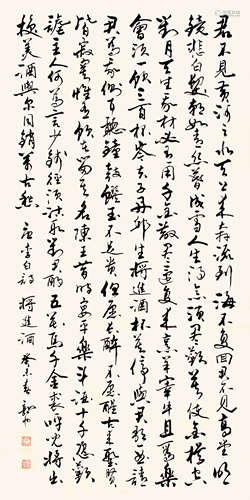 君不見黃河之水天上來奔流到海不復回君不見高堂明
鏡悲白髮朝如青絲暮成雪人生得意須盡歡莫使金樽空
對月天生我材必有用千金散盡還復來烹羊宰牛且為樂
會須一飲三百杯岑夫子丹邱生將進酒杯莫停與君歌一曲請
君為我側耳聽鐘鼓饌玉不足貴但願長醉不願醒古來聖賢
皆寂寞惟有飲者留其名陳王昔時宴平樂斗酒十千恣歡
謔主人何為言少錢徑須沽取對君酌五花馬千金裘呼兒將出
換美酒與爾同銷萬古愁 唐李白詩 將進酒 癸未春